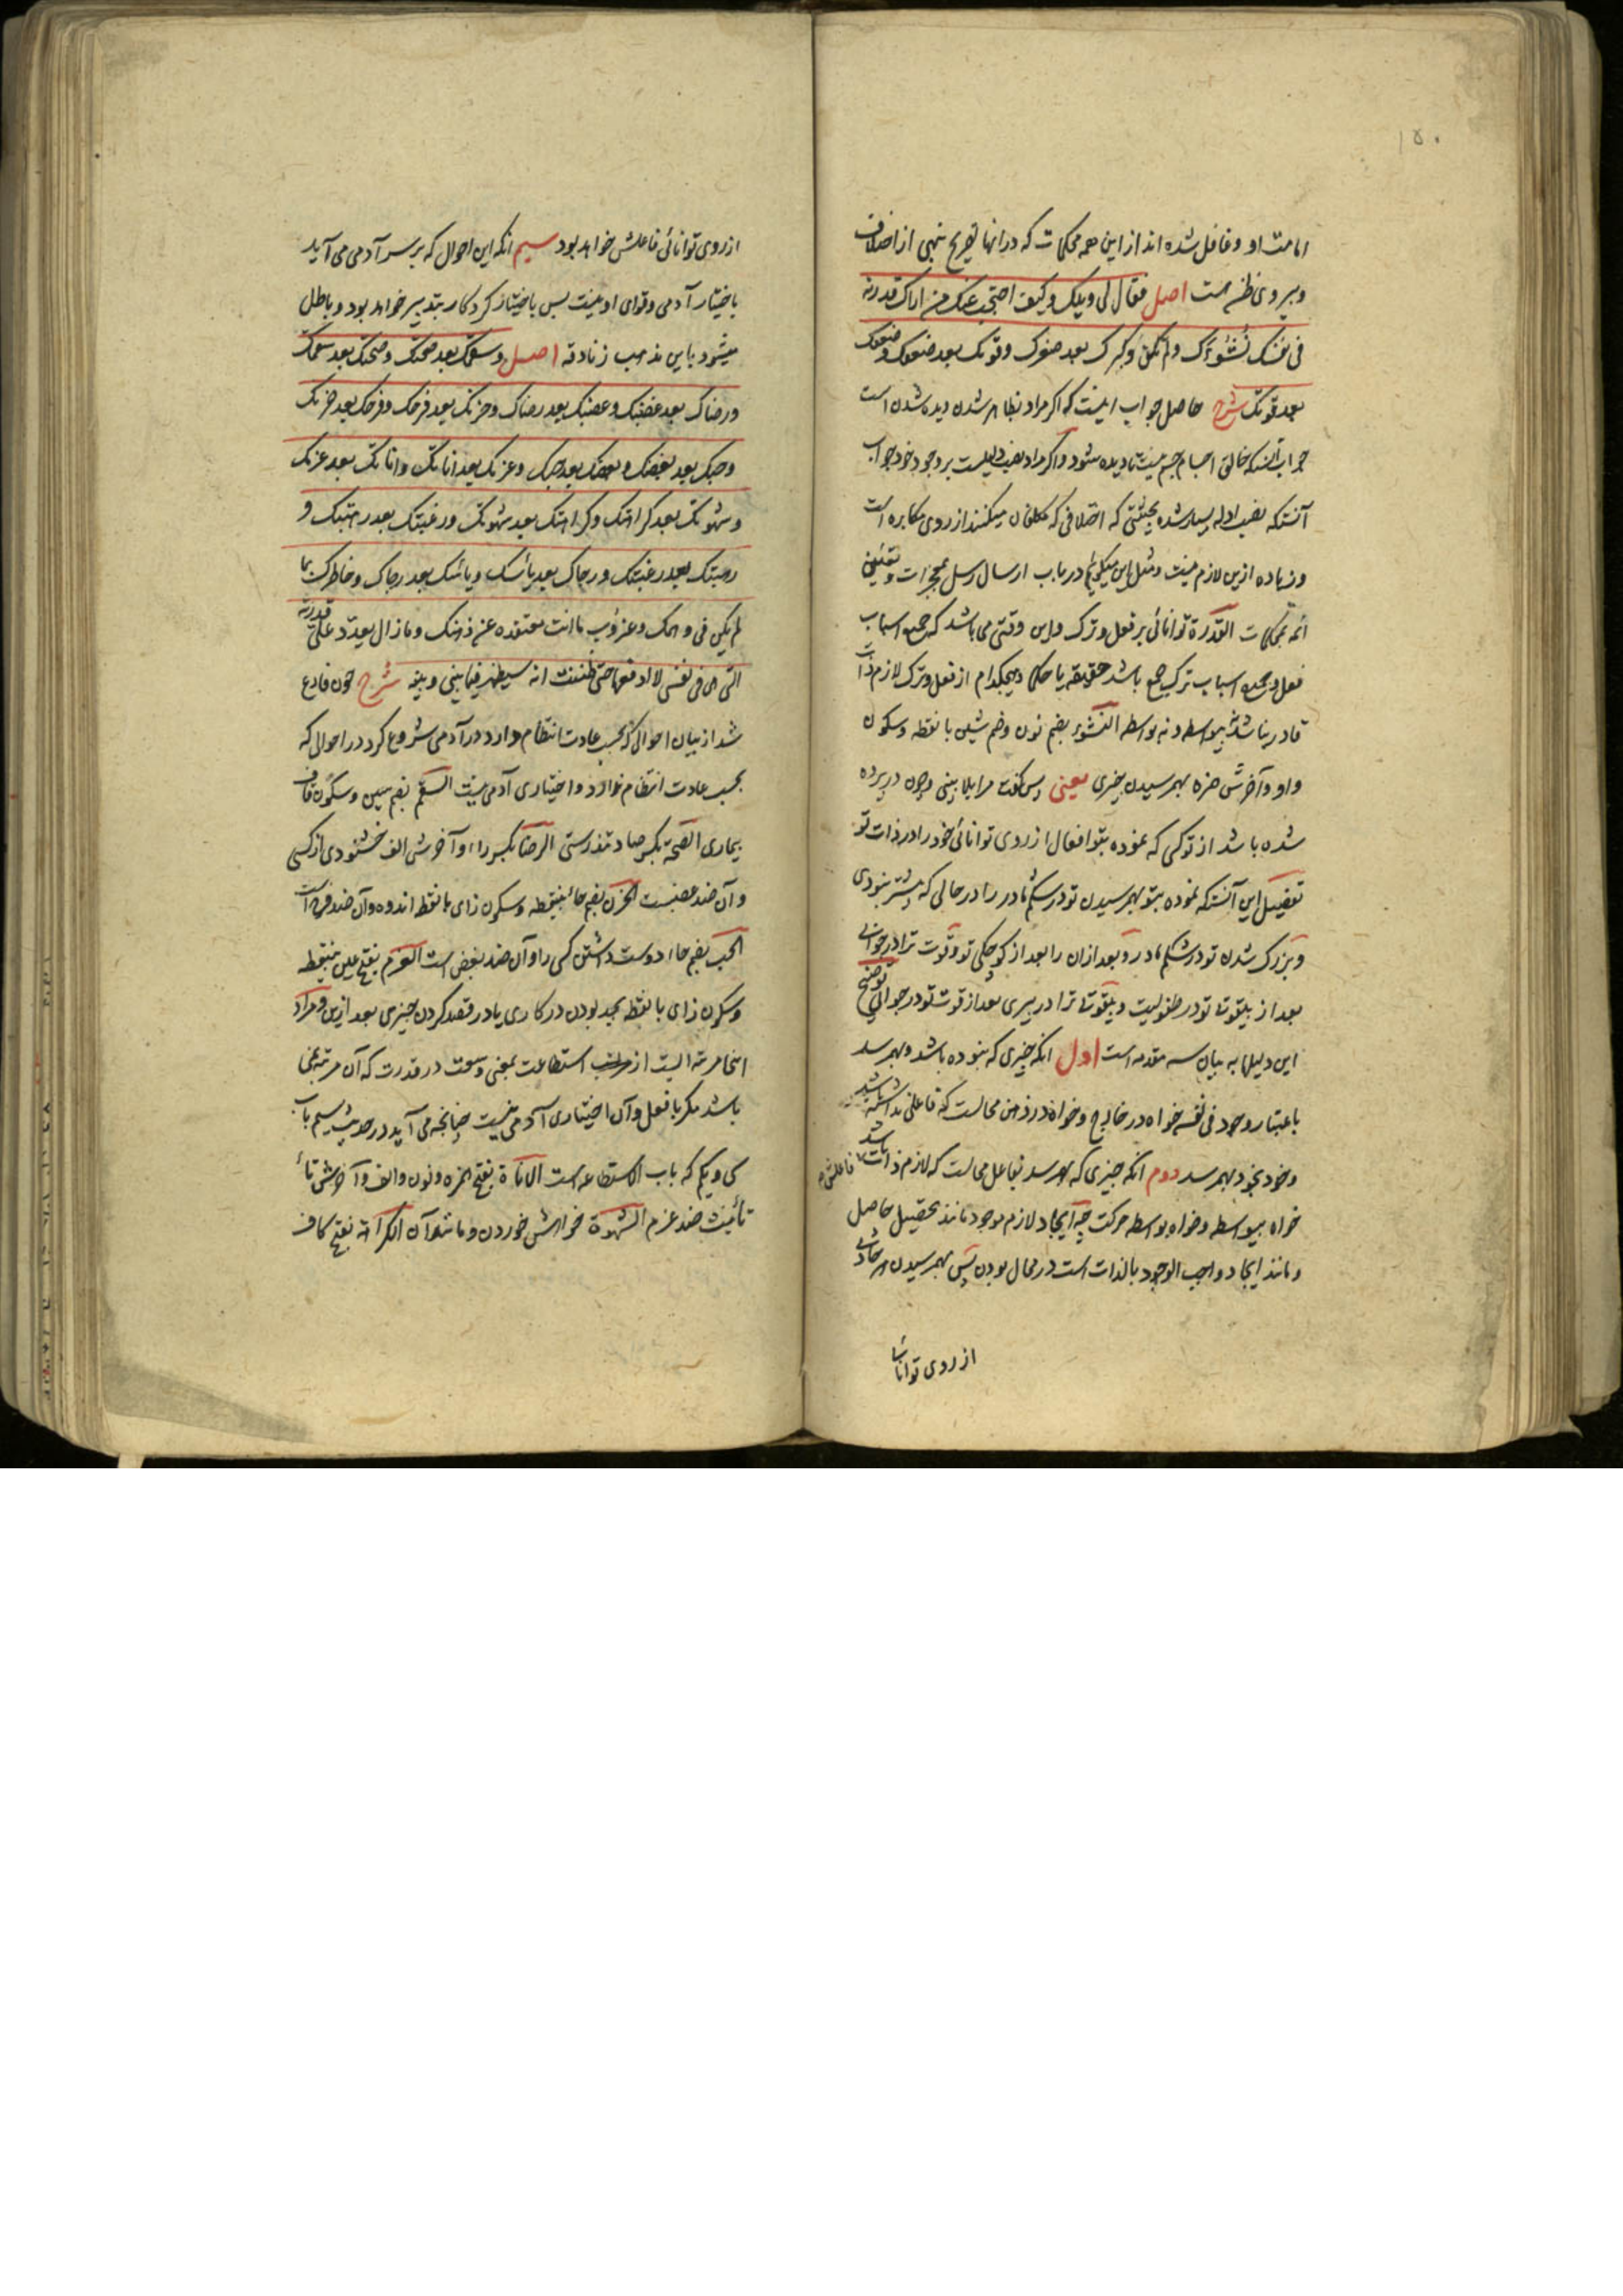 ۱۵۰
امامت او و غافل شده اند از این همه محکمات که در انها تصریح بنهی از اختلاف
و پیروی ظن هست اصل فقال لی ویلک وکیف احتجب عنک من اراک قدرته
فی نفسک نُشُوْءَک ولم تکن وکبرک بعد صغرک وقوتک بعد ضعفک وضعفک
بعد قوتک شرح حاصل جواب اینست که اگر مراد بظاهر شدن دیده شدن است
جواب آنست که خالق اجسام جسم نیست تا دیده شود و اگر مراد نصب دلیلست بر وجود خود جواب
آنست که نصب ادله بسیار شده بحیثیتی که اختلافی که مکلفان میکنند از روی مکابره است
و زیاده ازین لازم نیست و مثل این میگوئیم در باب ارسال رسل بمعجزات و تعیین
ائمه بمحکمات القدرة توانائی بر فعل و ترک و این وقتی می باشد که جمیع اسباب
فعل و جمیع اسباب ترک جمع باشد حقیقة یا حکما و هیچکدام از فعل و ترک لازم ذات
قادر نباشد نه بیواسطه و نه بواسطه النشوء بضم نون و ضم شین با نقطه و سکون
واو و آخرش همزه بهمرسیدن چیزی یعنی پس گفت مرا یلا بینی و چون در پرده
شده باشد از تو کسی که نموده بتو افعال از روی توانائی خود را در ذات تو
تفصیل این آنست که نموده بتو بهمرسیدن تو در شکم مادر را در حالی که پیشتر نبودی
و بزرگ شدن تو در شکم مادر و بعد ازان را بعد از کوچکی تو و قوت ترا در جوانی
بعد از بیقوتی تو در طفولیت و بیقوتی ترا در پیری بعد از قوت تو در جوانی توضیح
این دلیلها به بیان سه مقدمه است اول انکه چیزی که نبوده باشد و بهمرسد
باعتبار وجود فی نفسه خواه در خارج و خواه در ذهن محالست که فاعلی نداشته باشد
و خود بخود بهمرسد دوم انکه چیزی که بهمرسد بفاعل محالست که لازم ذات فاعلش باشد
خواه بیواسطه و خواه بواسطه حرکت چه ایجاد لازم موجود مانند تحصیل حاصل
و مانند ایجاد واجب الوجود بالذات است در محال بودن پس بهمرسیدن هر حادثی
از روی توانائی
از روی توانائی فاعلش خواهد بود سیم انکه این احوال که بر سر آدمی می آید
باختیار آدمی و قوای او نیست پس باختیار کردکار بتدبیر خواهد بود و باطل
میشود باین مذهب زنادقه اصل وسقمک بعد صحتک وصحتک بعد سقمک
ورضاک بعد غضبک وغضبک بعد رضاک وحزنک بعد فرحک وفرحک بعد حزنک
وحبک بعد بغضک وبغضک بعد حبک وعزمک بعد اناتک واناتک بعد عزمک
وشهوتک بعد کراهتک وکراهتک بعد شهوتک ورغبتک بعد رهبتک و
رهبتک بعد رغبتک ورجاک بعد یأسک ویأسک بعد رجاک وخاطرک بما
لم یکن فی وهمک وعزوب ما انت معتقده عن ذهنک ومازال یعدّد علیّ قدرته
التی هی فی نفسی لا ادفعها حتی ظننت انه سیظهر فیما بینی وبینه شرح چون فارغ
شد از بیان احوالی که بحسب عادت انتظام دارد در آدمی شروع کرد در احوالی که
بحسب عادت انتظام ندارد و اختیاری آدمی نیست السقم بضم سین و سکون قاف
بیماری الصحة بکسر صاد تندرستی الرضا بکسر را و آخرش الف خشنودی از کسی
و آن ضد غضبست الحزن بضم حاء بینقطه و سکون زای با نقطه اندوه و آن ضد فرح است
الحب بضم حا دوست داشتن کسی را و آن ضد بغض است العزم بفتح عین بینقطه
و سکون زای با نقطه بجد بودن در کاری یا در قصد کردن چیزی بعد ازین و مراد
اینجا مرتبه ایست از مراتب استطاعت بمعنی وسعت در قدرت که آن مرتبه نمی
باشد مکر با فعل و آن اختیاری آدمی نیست چنانچه می آید در حدیث سیم باب
سی و یکم که باب الاستطاعه است الاناة بفتح همزه و نون و الف و آخرش تاء
تأنیث ضد عزم الشهوة خواهش خوردن و مانند آن الکراهة بفتح کاف